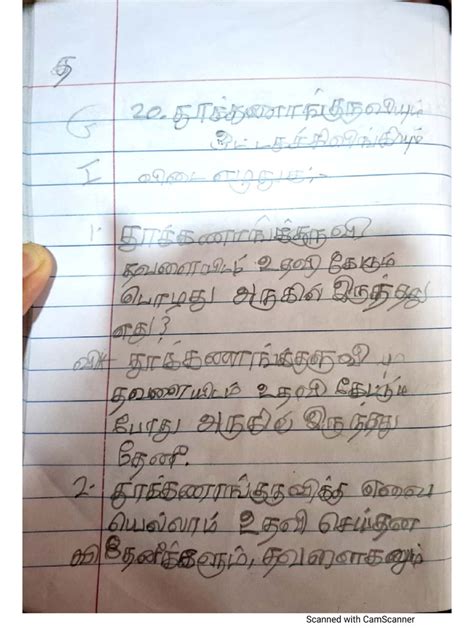 த
20. தூக்கணாங்குருவியும்
ஒட்டகச்சிவிங்கியும்
I விடை எழுதுக:-
1. தூக்கணாங்க்குருவி
தவளையிடம் உதவி கேட்கும்
பொழுது அருகில் இருந்தது
எது?
விடை தூக்கணாங்க்குருவி
தவளையிடம் உதவி கேட்டும்
போது அருகில் இருந்தது
தேனீ.
2. தூக்கணாங்குருவிக்கு எவை
யெல்லாம் உதவி செய்தன
வி தேனீக்களும், தவளைகளும்
Scanned with CamScanner